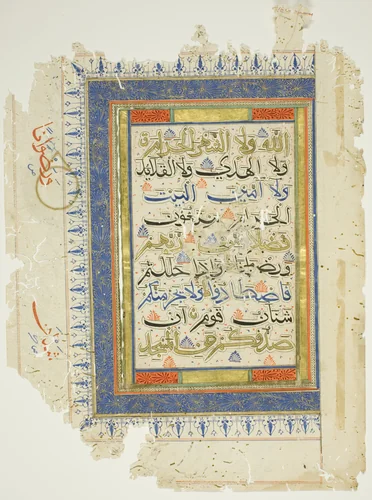 الله ولا الشهر الحرام
ولا الهدي ولا القلائد
ولا آمين البيت
الحرام يبتغون
فضلا من ربهم
ورضوانا وإذا حللتم
فاصطادوا ولا يجرمنكم
شنآن قوم أن
صدوكم عن المسجد
ورضوانا